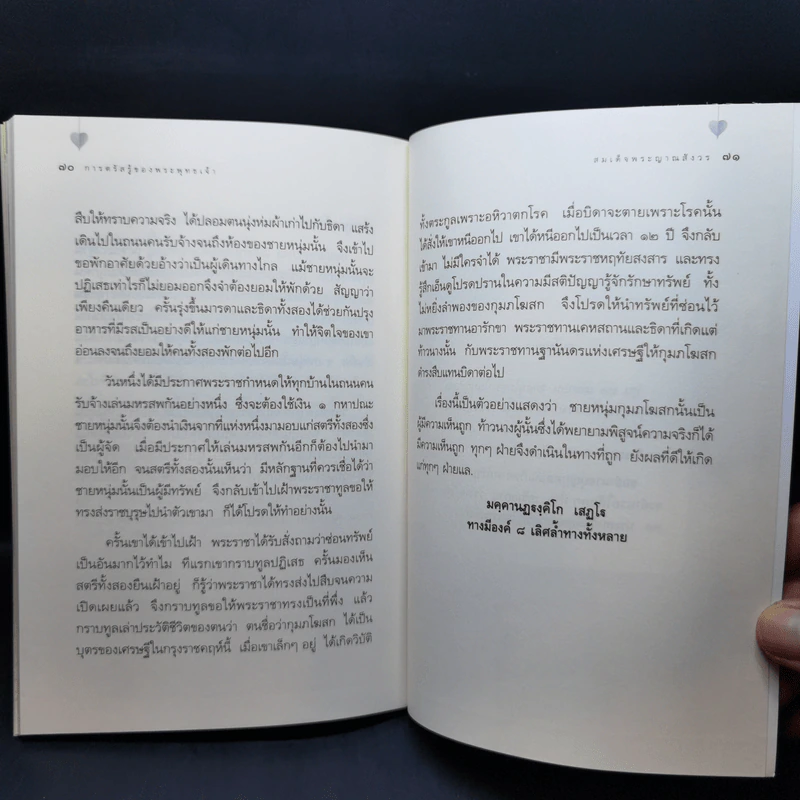 ๗๐ การตรัสรู้ของพระพุทธเจ้า
สืบให้ทราบความจริง ได้ปลอมตนนุ่งห่มผ้าเก่าไปกับธิดา แสร้ง
เดินไปในถนนคนรับจ้างจนถึงห้องของชายหนุ่มนั้น จึงเข้าไป
ขอพักอาศัยด้วยอ้างว่าเป็นผู้เดินทางไกล แม้ชายหนุ่มนั้นจะ
ปฏิเสธเท่าไรก็ไม่ยอมออกจึงจำต้องยอมให้พักด้วย สัญญาว่า
เพียงคืนเดียว ครั้นรุ่งขึ้นมารดาและธิดาทั้งสองได้ช่วยกันปรุง
อาหารที่มีรสเป็นอย่างดีให้แก่ชายหนุ่มนั้น ทำให้จิตใจของเขา
อ่อนลงจนถึงยอมให้คนทั้งสองพักต่อไปอีก
วันหนึ่งได้มีประกาศพระราชกำหนดให้ทุกบ้านในถนนคน
รับจ้างเล่นมหรสพกันอย่างหนึ่ง ซึ่งจะต้องใช้เงิน ๑ กหาปณะ
ชายหนุ่มนั้นจึงต้องนำเงินจากที่แห่งหนึ่งมามอบแก่สตรีทั้งสองซึ่ง
เป็นผู้จัด เมื่อมีประกาศให้เล่นมหรสพกันอีกก็ต้องไปนำมา
มอบให้อีก จนสตรีทั้งสองนั้นเห็นว่า มีหลักฐานที่ควรเชื่อได้ว่า
ชายหนุ่มนั้นเป็นผู้มีทรัพย์ จึงกลับเข้าไปเฝ้าพระราชาทูลขอให้
ทรงส่งราชบุรุษไปนำตัวเขามา ก็ได้โปรดให้ทำอย่างนั้น
ครั้นเขาได้เข้าไปเฝ้า พระราชาได้รับสั่งถามว่าซ่อนทรัพย์
เป็นอันมากไว้ทำไม ทีแรกเขากราบทูลปฏิเสธ ครั้นมองเห็น
สตรีทั้งสองยืนเฝ้าอยู่ ก็รู้ว่าพระราชาได้ทรงส่งไปสืบจนความ
เปิดเผยแล้ว จึงกราบทูลขอให้พระราชาทรงเป็นที่พึ่ง แล้ว
กราบทูลเล่าประวัติชีวิตของตนว่า ตนชื่อว่ากุมภโฆสก ได้เป็น
บุตรของเศรษฐีในกรุงราชคฤห์นี้ เมื่อเขาเล็กๆ อยู่ ได้เกิดวิบัติ
สมเด็จพระญาณสังวร ๗๑
ทั้งตระกูลเพราะอหิวาตกโรค เมื่อบิดาจะตายเพราะโรคนั้น
ได้สั่งให้เขาหนีออกไป เขาได้หนีออกไปเป็นเวลา ๑๒ ปี จึงกลับ
เข้ามา ไม่มีใครจำได้ พระราชามีพระราชหฤทัยสงสาร และทรง
รู้สึกเอ็นดูโปรดปรานในความมีสติปัญญารู้จักรักษาทรัพย์ ทั้ง
ไม่หยิ่งลำพองของกุมภโฆสก จึงโปรดให้นำทรัพย์ที่ซ่อนไว้
มาพระราชทานอารักขา พระราชทานเคหสถานและธิดาที่เกิดแต่
ท้าวนางนั้น กับพระราชทานฐานันดรแห่งเศรษฐีให้กุมภโฆสก
ดำรงสืบแทนบิดาต่อไป
เรื่องนี้เป็นตัวอย่างแสดงว่า ชายหนุ่มกุมภโฆสกนั้นเป็น
ผู้มีความเห็นถูก ท้าวนางผู้นั้นซึ่งได้พยายามพิสูจน์ความจริงก็ได้
มีความเห็นถูก ทุกๆ ฝ่ายจึงดำเนินในทางที่ถูก ยังผลที่ดีให้เกิด
แก่ทุกๆ ฝ่ายแล.
มคฺคานฏฺฐงฺคิโก เสฏฺโฐ
ทางมีองค์ ๘ เลิศล้ำทางทั้งหลาย